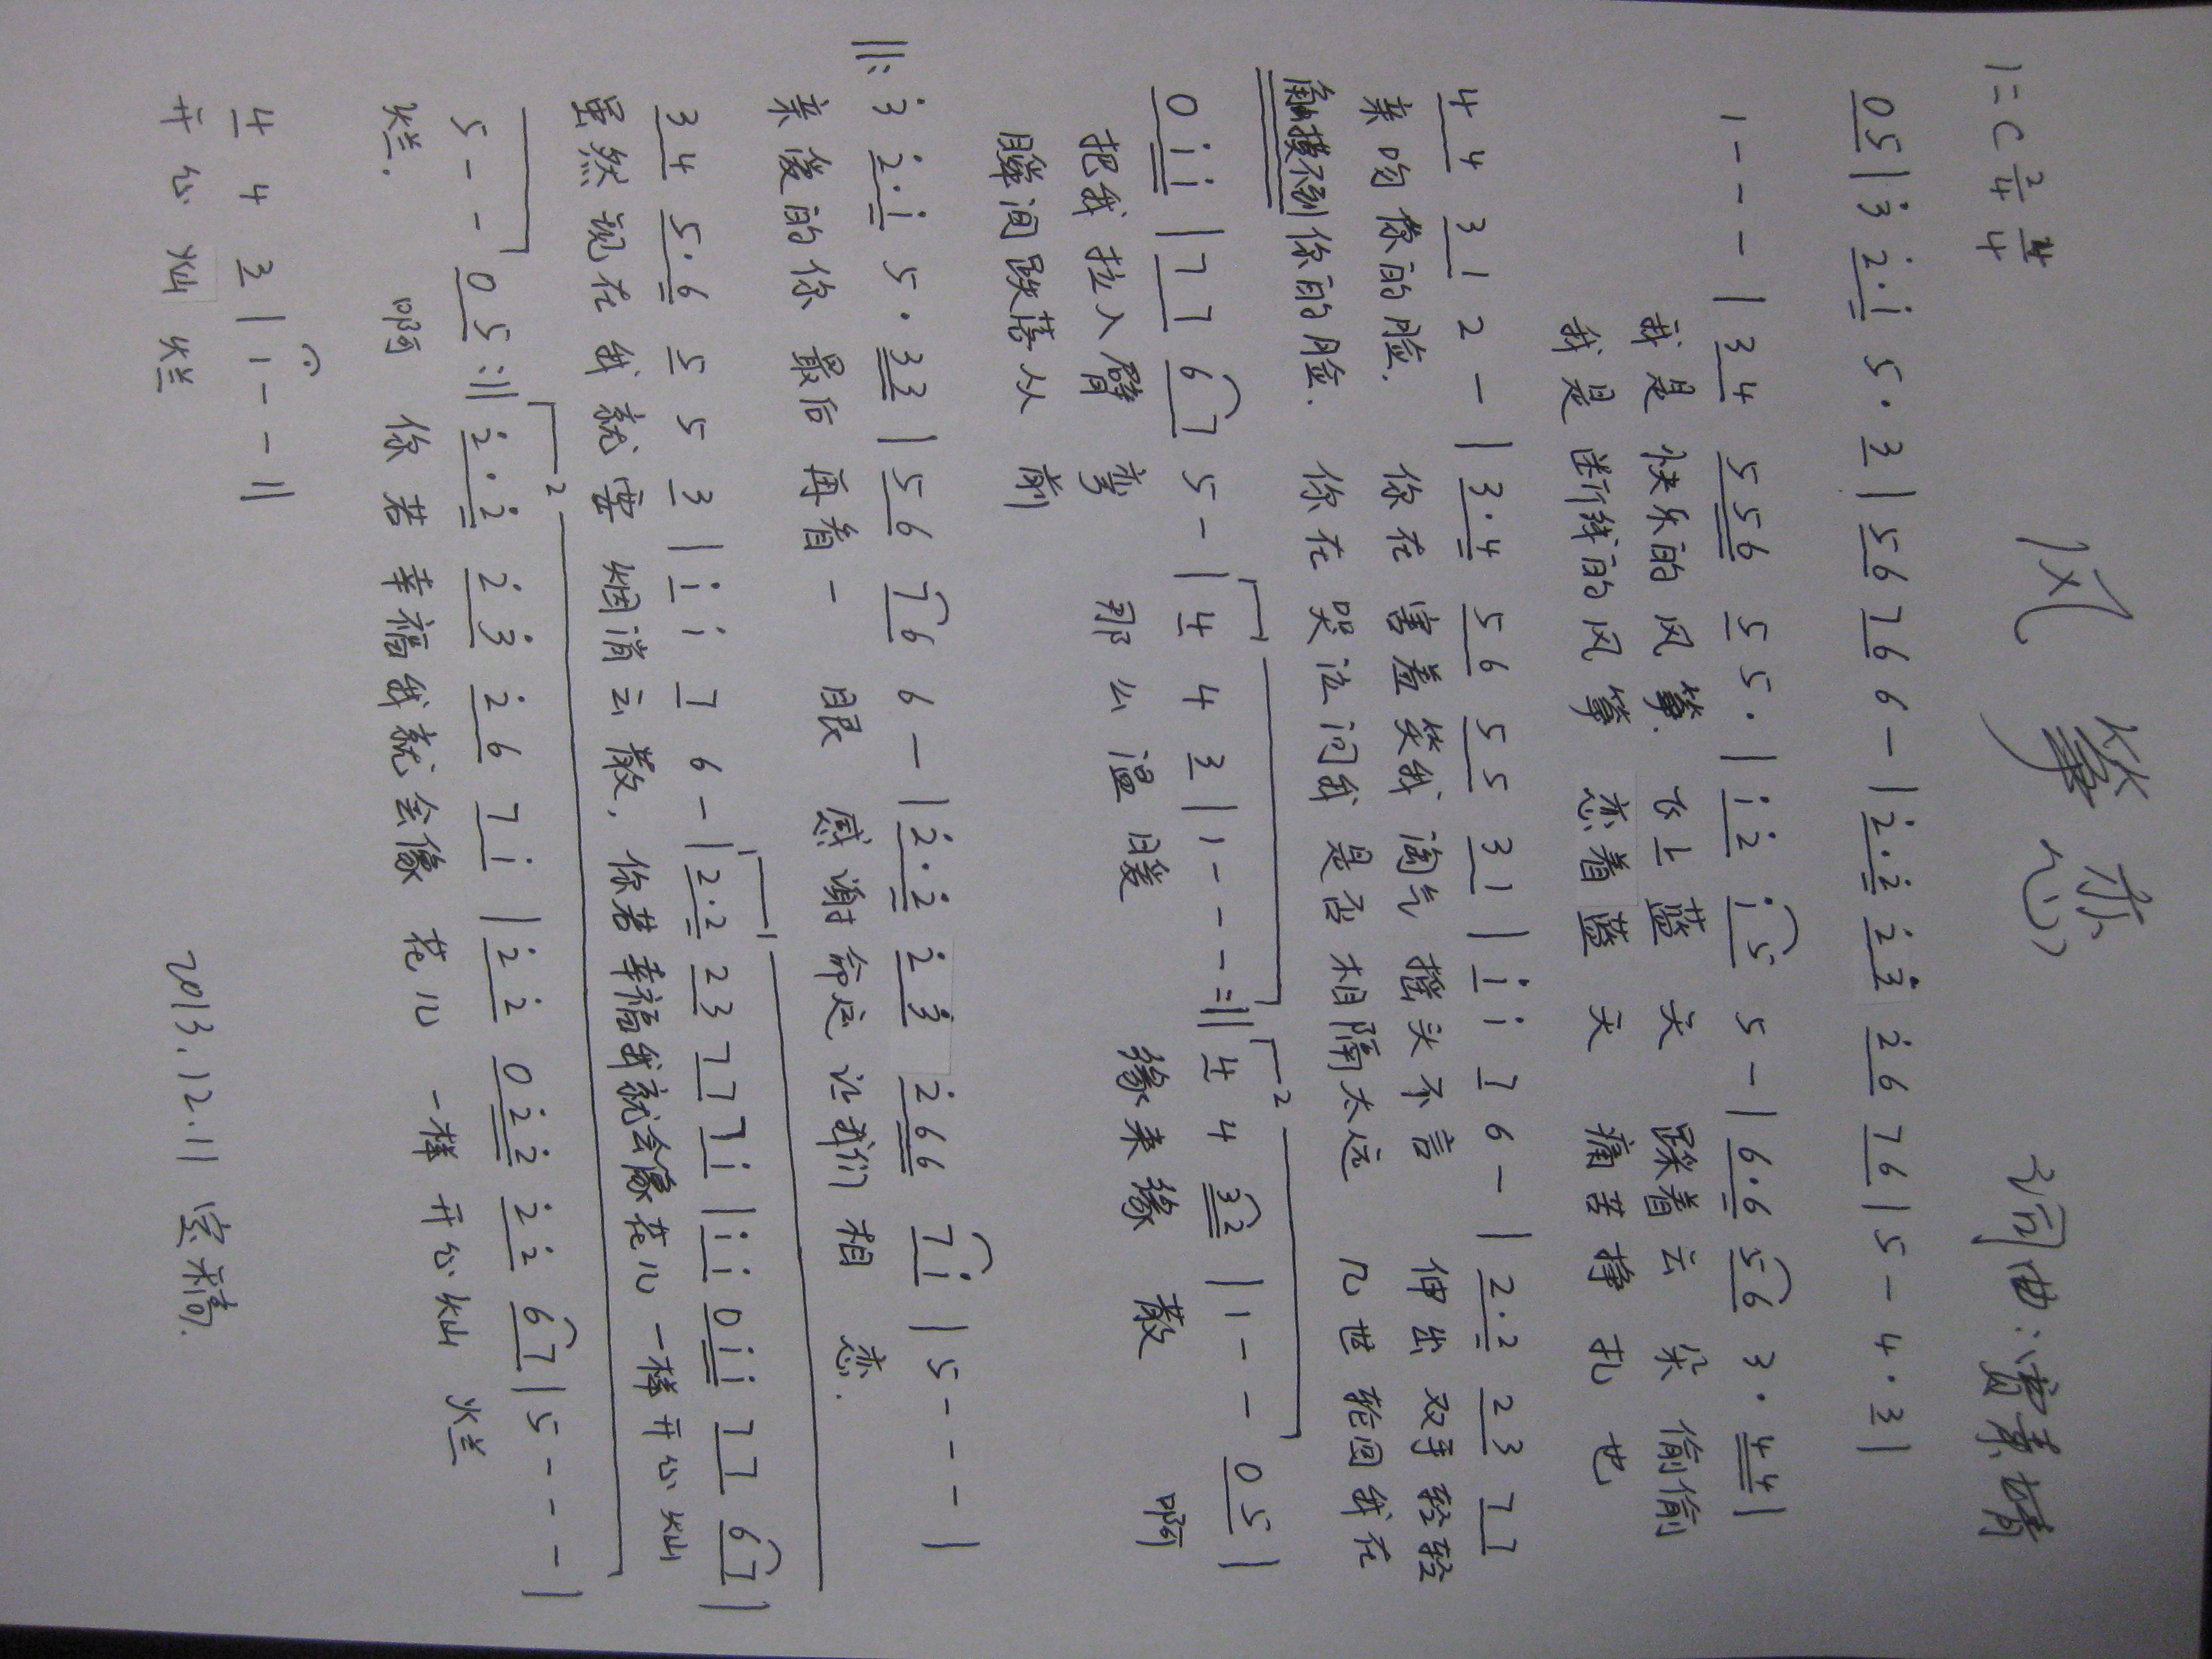 风筝恋
1=C 2/4 4/4 词曲:
05 | 3̇ 2̇·1̇ 5·3 | 56 76 6 - | 2̇·2̇ 2̇3̇ 2̇6 76 | 5 - 4·3 |
1 - - - | 34 556 5 5· | 1̇2̇ 1̇5 5 - | 6·6 56 3·44 |
我是快乐的风筝. 飞上蓝天 踩着云朵偷偷
我是断线的风筝 恋着蓝天 痛苦挣扎也
4 4 3 1 2 - | 3·4 56 55 31 | 1̇ 1̇ 7 6 - | 2·2 23 77
亲吻你的脸. 你在害羞笑我淘气摇头不言 伸出双手轻轻
触摸不到你的脸. 你在哭泣问我是否相隔太远 几世轮回我在
01̇1̇ | 77 67 5 - | 1. 4 4 3 | 1 - - - :|| 2. 4 4 32 | 1 - - 05 |
把我拉入臂弯 那么温暖 缘来缘散 啊
瞬间跌落从前
||: 3̇ 2̇·1̇ 5·33 | 56 76 6 - | 2̇·2̇ 2̇3̇ 2̇66 71̇ | 5 - - - |
亲爱的你 最后再看一眼 感谢命运让我们相恋.
34 5·6 5 5 3 | 1̇ 1̇ 7 6 - | 1. 2·2 23 77 71̇ | 1̇1̇ 01̇1̇ 77 67 |
虽然现在我就要烟消云散, 你若幸福我就会像花儿一样开心灿
5 - - 05 :|| 2. 2̇·2̇ 2̇3̇ 2̇6 71̇ | 2̇2̇ 02̇2̇ 2̇2̇ 67 | 5 - - - |
烂. 啊 你若幸福我就会像花儿一样开心灿烂
4 4 3 | 1 - - ||
开心灿烂
2013.12.11 定稿.